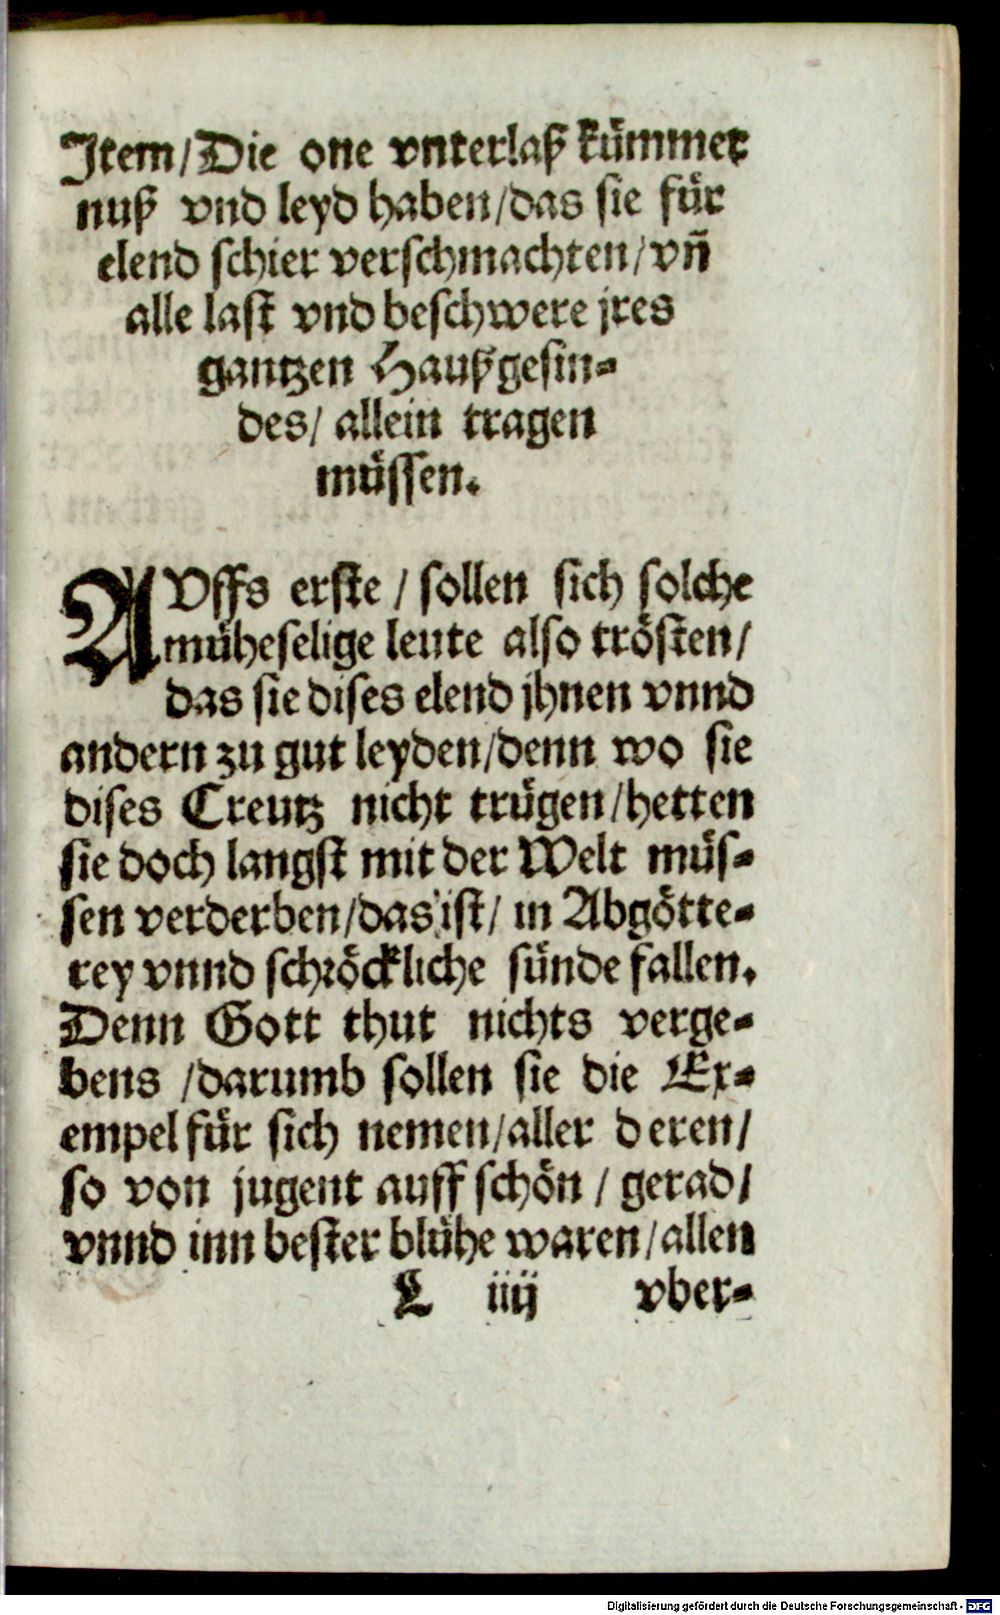 Item/ Die one vnterlaß kümmer
nuß vnd leyd haben/ das sie für
elend schier verschmachten/ vñ
alle last vnd beschwere jres
gantzen Haußgesin-
des/ allein tragen
müssen.
AVffs erste/ sollen sich solche
müheselige leute also trösten/
das sie dises elend jhnen vnnd
andern zu gut leyden/ denn wo sie
dises Creutz nicht trügen/ hetten
sie doch langst mit der Welt müs-
sen verderben/ das ist/ in Abgötte-
rey vnnd schröckliche sünde fallen.
Denn Gott thut nichts verge-
bens/ darumb sollen sie die Ex-
empel für sich nemen/ aller deren/
so von jugent auff schön/ gerad/
vnnd inn bester blühe waren/ allen
L iiij vber-
Digitalisierung gefördert durch die Deutsche Forschungsgemeinschaft - DFG